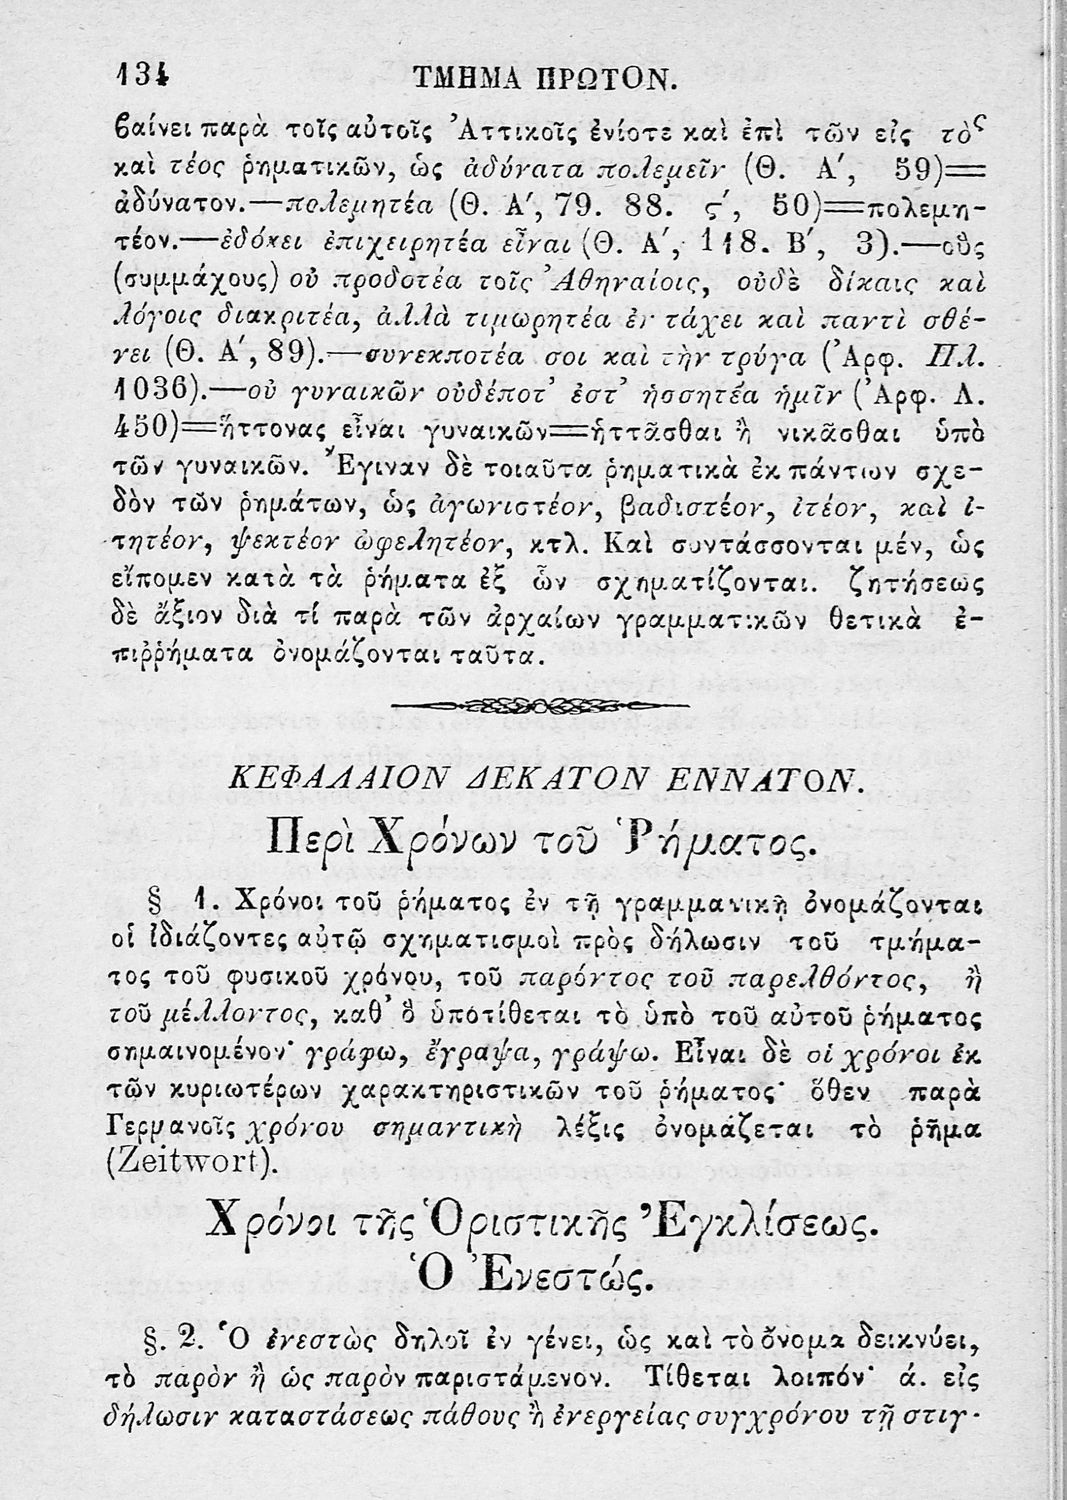 134 ΤΜΗΜΑ ΠΡΩΤΟΝ.
βαίνει παρὰ τοῖς αὐτοῖς Ἀττικοῖς ἐνίοτε καὶ ἐπὶ τῶν εἰς τὸς
καὶ τέος ῥηματικῶν, ὡς ἀδύνατα πολεμεῖν (Θ. Α΄, 59)=
ἀδύνατον.—πολεμητέα (Θ. Α΄, 79. 88. ς΄, 50)=πολεμη-
τέον.—ἐδόκει ἐπιχειρητέα εἶναι (Θ. Α΄, 118. Β΄, 3).—οὓς
(συμμάχους) οὐ προδοτέα τοῖς Ἀθηναίοις, οὐδὲ δίκαις καὶ
λόγοις διακριτέα, ἀλλὰ τιμωρητέα ἐν τάχει καὶ παντὶ σθέ-
νει (Θ. Α΄, 89).—συνεκποτέα σοι καὶ τὴν τρύγα (Ἀρφ. Πλ.
1036).—οὐ γυναικῶν οὐδέποτ᾽ ἐστ᾽ ἡσσητέα ἡμῖν (Ἀρφ. Λ.
450)=ἥττονας εἶναι γυναικῶν=ἡττᾶσθαι ἢ νικᾶσθαι ὑπὸ
τῶν γυναικῶν. Ἔγιναν δὲ τοιαῦτα ῥηματικὰ ἐκ πάντων σχε-
δὸν τῶν ῥημάτων, ὡς ἀγωνιστέον, βαδιστέον, ἰτέον, καὶ ἰ-
τητέον, ψεκτέον ὠφελητέον, κτλ. Καὶ συντάσσονται μέν, ὡς
εἴπομεν κατὰ τὰ ῥήματα ἐξ ὧν σχηματίζονται. ζητήσεως
δὲ ἄξιον διὰ τί παρὰ τῶν ἀρχαίων γραμματικῶν θετικὰ ἐ-
πιῤῥήματα ὀνομάζονται ταῦτα.
ΚΕΦΑΛΑΙΟΝ ΔΕΚΑΤΟΝ ΕΝΝΑΤΟΝ.
Περὶ Χρόνων τοῦ Ῥήματος.
§ 1. Χρόνοι τοῦ ῥήματος ἐν τῇ γραμματικῇ ὀνομάζονται
οἱ ἰδιάζοντες αὐτῷ σχηματισμοὶ πρὸς δήλωσιν τοῦ τμήμα-
τος τοῦ φυσικοῦ χρόνου, τοῦ παρόντος τοῦ παρελθόντος, ἢ
τοῦ μέλλοντος, καθ᾽ ὃ ὑποτίθεται τὸ ὑπὸ τοῦ αὐτοῦ ῥήματος
σημαινομένον· γράφω, ἔγραψα, γράψω. Εἶναι δὲ οἱ χρόνοι ἐκ
τῶν κυριωτέρων χαρακτηριστικῶν τοῦ ῥήματος· ὅθεν παρὰ
Γερμανοῖς χρόνου σημαντικὴ λέξις ὀνομάζεται τὸ ῥῆμα
(Zeitwort).
Χρόνοι τῆς Ὁριστικῆς Ἐγκλίσεως.
Ὁ Ἐνεστώς.
§. 2. Ὁ ἐνεστὼς δηλοῖ ἐν γένει, ὡς καὶ τὸ ὄνομα δεικνύει,
τὸ παρὸν ἢ ὡς παρὸν παριστάμενον. Τίθεται λοιπόν· ά. εἰς
δήλωσιν καταστάσεως πάθους ἢ ἐνεργείας συγχρόνου τῇ στιγ-